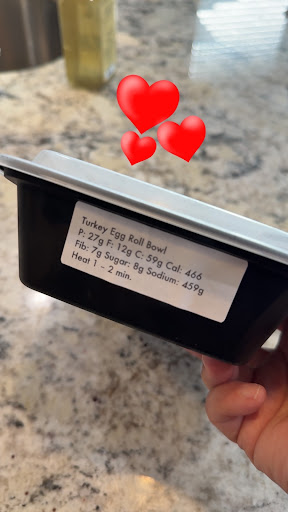 Turkey Egg Roll Bowl
P: 27g F: 12g C: 59g Cal: 466
Fib: 7g Sugar: 8g Sodium: 459g
Heat 1 - 2 min.